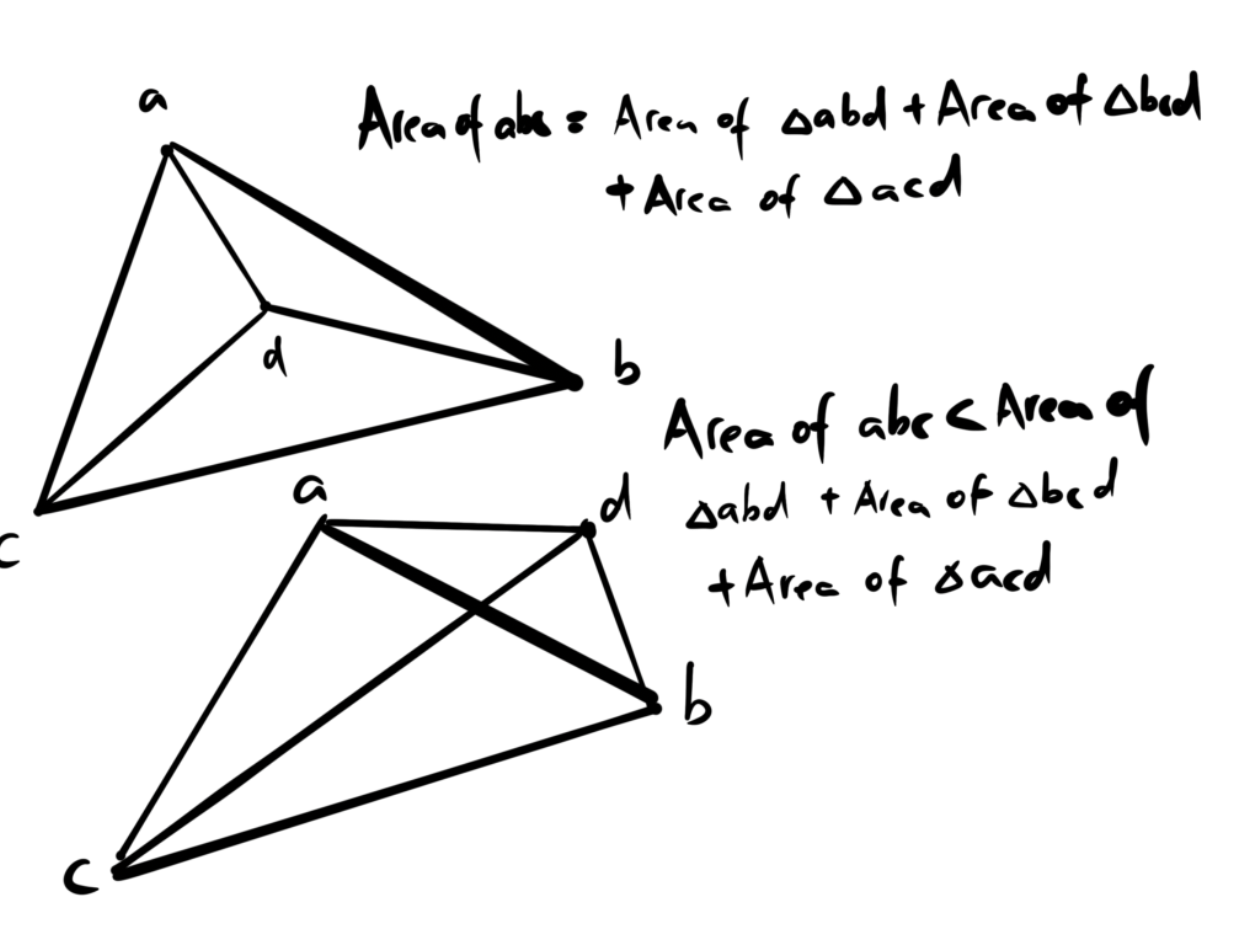 a
Area of abc = Area of △abd + Area of △bcd
+ Area of △acd
d
b
c
Area of abc < Area of
△abd + Area of △bcd
+ Area of △acd
a
d
b
c